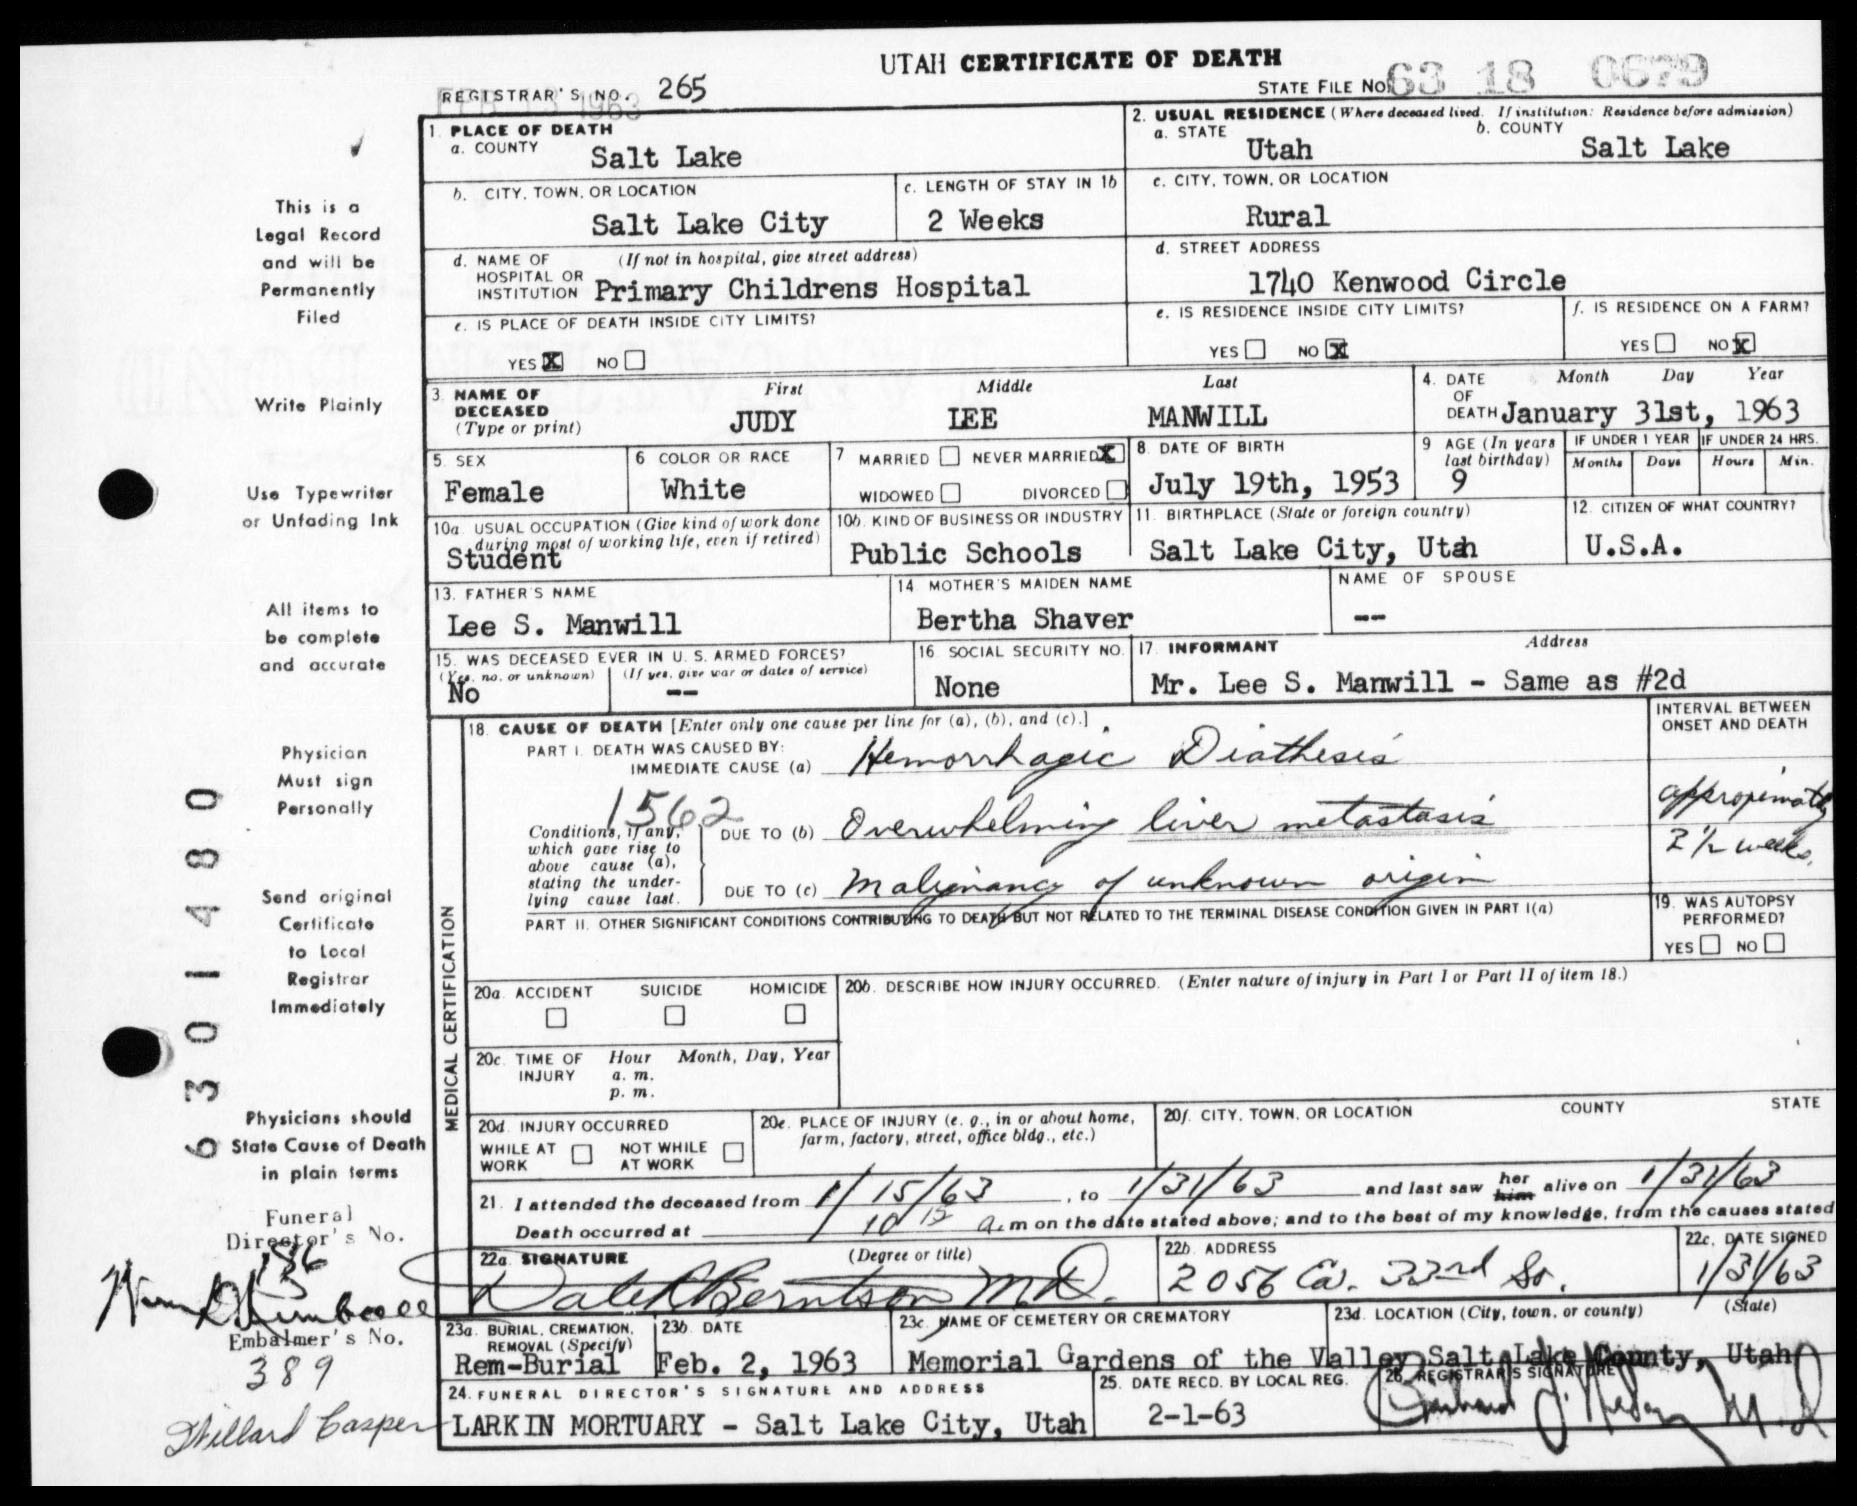 UTAH CERTIFICATE OF DEATH
STATE FILE NO. 63 18 0679
REGISTRAR'S NO. 265
FEB 13 1963
1. PLACE OF DEATH
a. COUNTY Salt Lake
2. USUAL RESIDENCE (Where deceased lived. If institution: Residence before admission)
a. STATE Utah b. COUNTY Salt Lake
b. CITY, TOWN, OR LOCATION Salt Lake City
c. LENGTH OF STAY IN 1b 2 Weeks
c. CITY, TOWN, OR LOCATION Rural
d. NAME OF HOSPITAL OR INSTITUTION (If not in hospital, give street address) Primary Childrens Hospital
d. STREET ADDRESS 1740 Kenwood Circle
e. IS PLACE OF DEATH INSIDE CITY LIMITS? YES X NO
e. IS RESIDENCE INSIDE CITY LIMITS? YES NO X
f. IS RESIDENCE ON A FARM? YES NO X
3. NAME OF DECEASED (Type or print) First Middle Last
JUDY LEE MANWILL
4. DATE OF DEATH Month Day Year January 31st, 1963
5. SEX Female
6 COLOR OR RACE White
7 MARRIED NEVER MARRIED X WIDOWED DIVORCED
8. DATE OF BIRTH July 19th, 1953
9 AGE (In years last birthday) 9
IF UNDER 1 YEAR Months Days
IF UNDER 24 HRS. Hours Min.
10a. USUAL OCCUPATION (Give kind of work done during most of working life, even if retired) Student
10b. KIND OF BUSINESS OR INDUSTRY Public Schools
11. BIRTHPLACE (State or foreign country) Salt Lake City, Utah
12. CITIZEN OF WHAT COUNTRY? U.S.A.
13. FATHER'S NAME Lee S. Manwill
14 MOTHER'S MAIDEN NAME Bertha Shaver
NAME OF SPOUSE --
15. WAS DECEASED EVER IN U. S. ARMED FORCES?
(Yes, no, or unknown) No (If yes, give war or dates of service) --
16 SOCIAL SECURITY NO. None
17. INFORMANT Address
Mr. Lee S. Manwill - Same as #2d
MEDICAL CERTIFICATION
18. CAUSE OF DEATH [Enter only one cause per line for (a), (b), and (c).]
INTERVAL BETWEEN ONSET AND DEATH
PART I. DEATH WAS CAUSED BY:
IMMEDIATE CAUSE (a) Hemorrhagic Diathesis
1562
Conditions, if any, which gave rise to above cause (a), stating the underlying cause last.
DUE TO (b) Overwhelming liver metastasis
approximately 2 1/2 weeks.
DUE TO (c) Malignancy of unknown origin
PART II. OTHER SIGNIFICANT CONDITIONS CONTRIBUTING TO DEATH BUT NOT RELATED TO THE TERMINAL DISEASE CONDITION GIVEN IN PART I(a)
19. WAS AUTOPSY PERFORMED? YES NO
20a. ACCIDENT SUICIDE HOMICIDE
20b. DESCRIBE HOW INJURY OCCURRED. (Enter nature of injury in Part I or Part II of item 18.)
20c. TIME OF INJURY Hour a. m. p. m. Month, Day, Year
20d. INJURY OCCURRED
WHILE AT WORK NOT WHILE AT WORK
20e. PLACE OF INJURY (e. g., in or about home, farm, factory, street, office bldg., etc.)
20f. CITY, TOWN, OR LOCATION COUNTY STATE
21. I attended the deceased from 1/15/63, to 1/31/63 and last saw her him alive on 1/31/63
Death occurred at 10 15 a.m on the date stated above; and to the best of my knowledge, from the causes stated
22a. SIGNATURE (Degree or title)
Dale R Berntson M.D.
22b. ADDRESS 2056 Ea. 33rd So.
22c. DATE SIGNED 1/31/63
23a. BURIAL, CREMATION, REMOVAL (Specify) Rem-Burial
23b. DATE Feb. 2, 1963
23c. NAME OF CEMETERY OR CREMATORY Memorial Gardens of the Valley
23d. LOCATION (City, town, or county) (State) Salt Lake County, Utah
24. FUNERAL DIRECTOR'S SIGNATURE AND ADDRESS
LARKIN MORTUARY - Salt Lake City, Utah
25. DATE RECD. BY LOCAL REG. 2-1-63
26. REGISTRAR'S SIGNATURE
M.D
This is a
Legal Record
and will be
Permanently
Filed
Write Plainly
Use Typewriter
or Unfading Ink
All items to
be complete
and accurate
Physician
Must sign
Personally
Send original
Certificate
to Local
Registrar
Immediately
Physicians should
State Cause of Death
in plain terms
6301480
Funeral
Director's No.
186
Embalmer's No.
389
Willard Casper